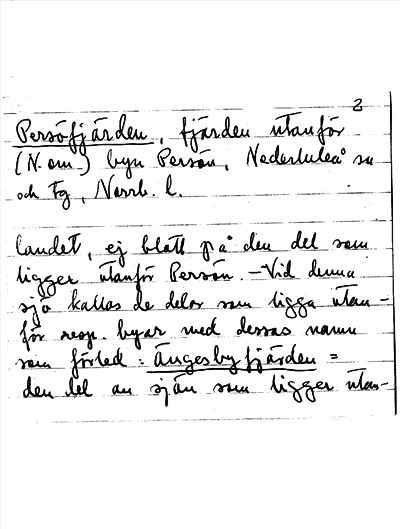 2
Persöfjärden, fjärden utanför
(N. om) byn Persön, Nederluleå sn
och Fg, Norrb. l.
landet, ej blott på den del som
ligger utanför Persön. – Vid denna
sjö kallas de delar som ligga utan-
för resp. byar med dessas namn
som förled: Ängesbyfjärden =
den del av sjön som ligger utan-